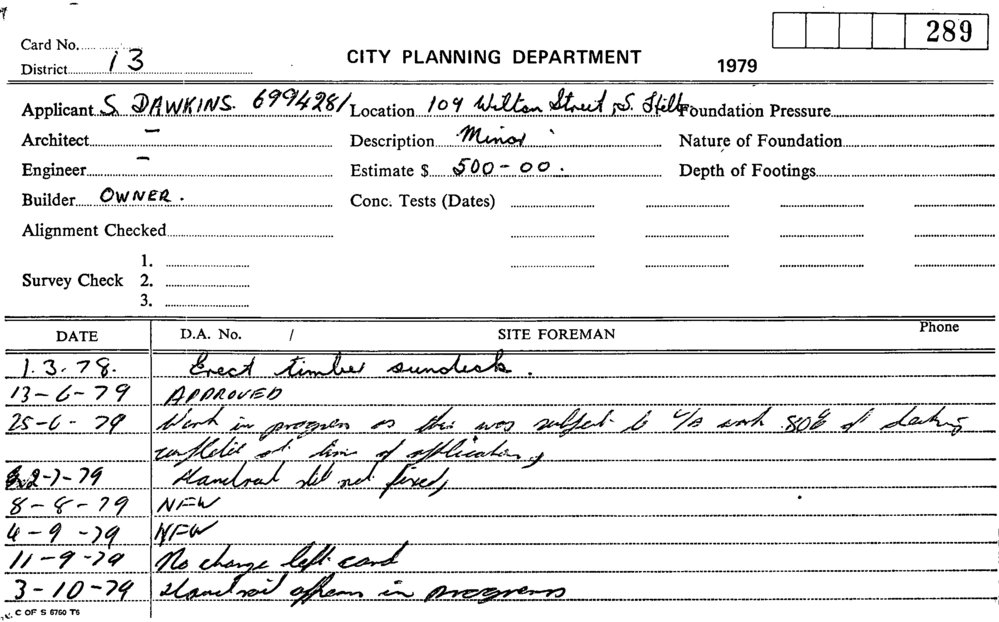 289
Card No.
District 13
CITY PLANNING DEPARTMENT
1979
Applicant S. DAWKINS. 6994281 Location 109 Wilton Street, S. Hill Foundation Pressure
Architect - Description Minor Nature of Foundation
Engineer - Estimate $ 500-00. Depth of Footings
Builder OWNER. Conc. Tests (Dates)
Alignment Checked
1.
Survey Check 2.
3.
DATE D.A. No. / SITE FOREMAN Phone
1.3.78. Erect timber sundeck.
13-6-79 APPROVED
25-6-79 Work in progress as this was subject to U/A work 80% of decking
complete at time of application,
2-7-79 Handrail still not fixed,
8-8-79 NFW
4-9-79 NFW
11-9-79 No change left card
3-10-79 Handrail in progress
C OF S 6760 T6